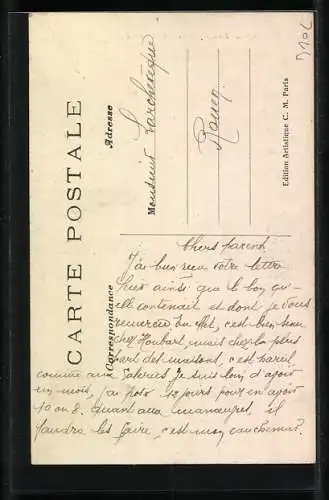 CARTE POSTALE
Correspondance
Adresse
Monsieur Larchevêque
Roucy
Edition Artistique C. M. Paris
Chers parents
J'ai bien reçu votre lettre
hier ainsi que le bon qu'-
elle contenait et dont je vous
remercie En effet, c'est bien beau
chez Houbart mais chez la plus
part des maisons, c'est pareil
comme aux Galeries Je suis loin d'avoir
un mois, j'ai 12 jours pour en avoir
10 ou 8. Quant aux manœuvres, il
faudra les faire, c'est mon cauchemar.